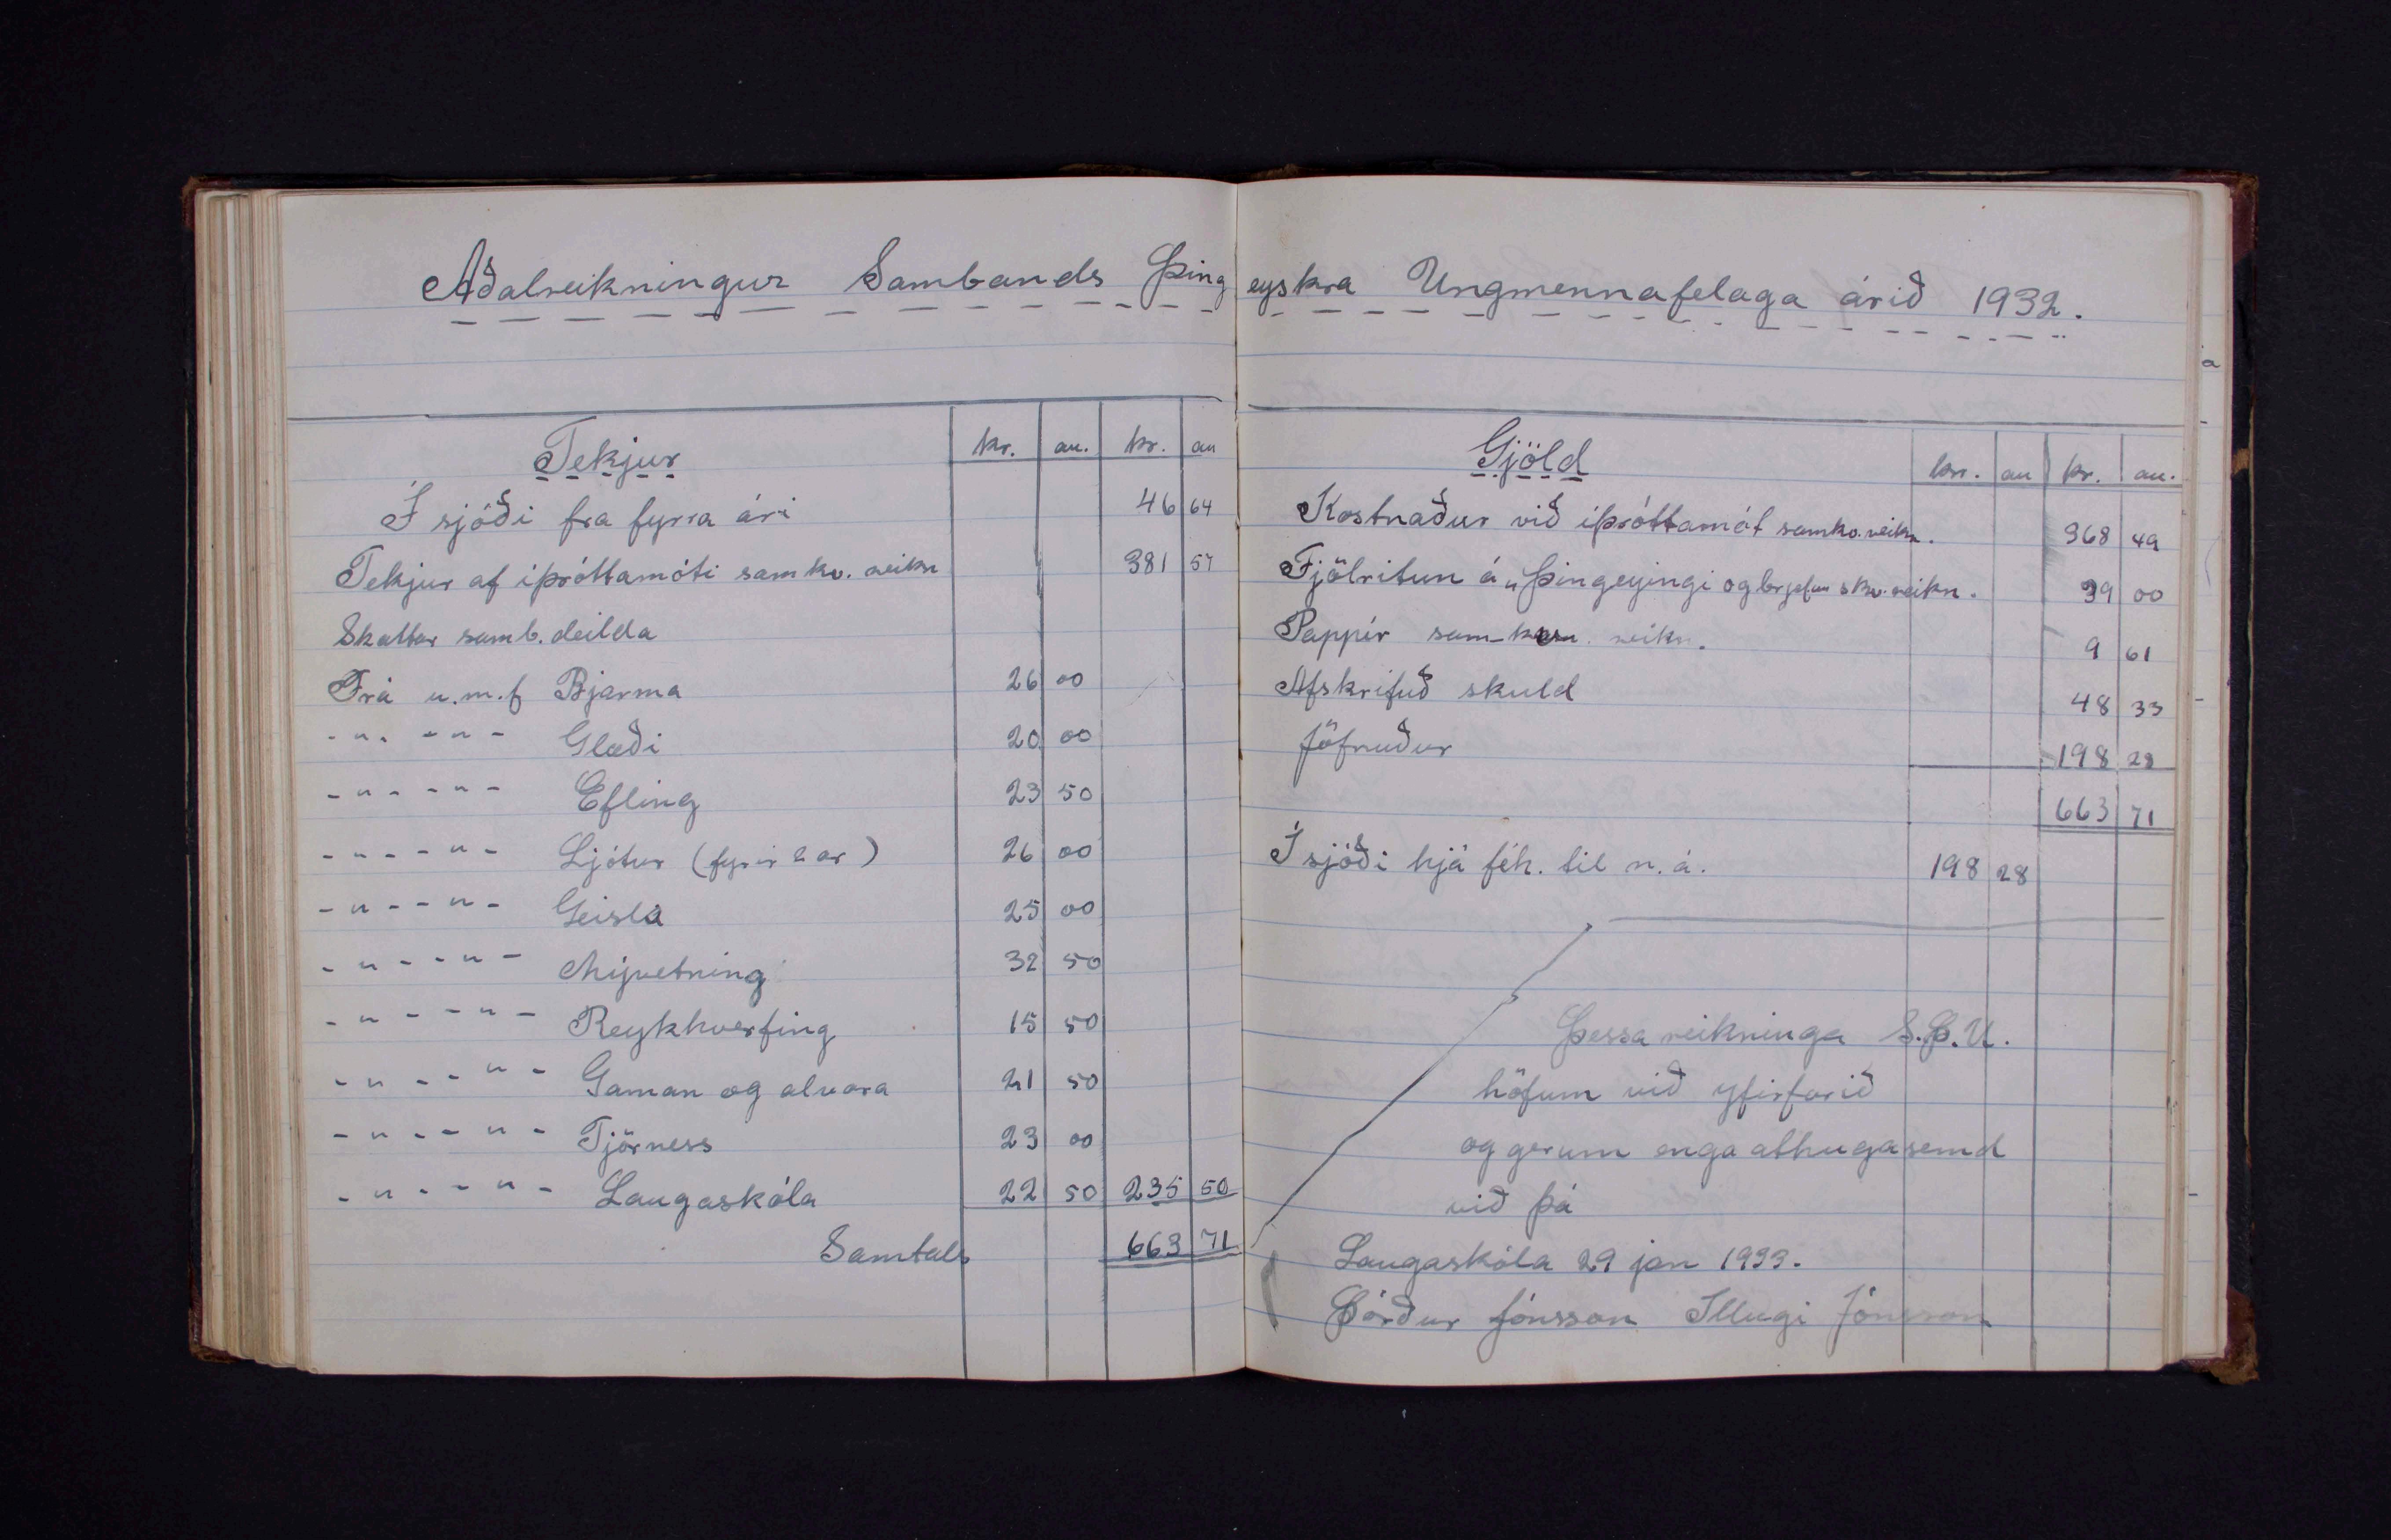 Aðalreikningur Sambands Þingeyskra Ungmennafelaga árið 1932.
Tekjur kr. au. kr. au
Í sjóði fra fyrra ári 46 64
Tekjur af íþróttamóti samkv. reikn 381 57
Skattar samb. deilda
Frá u.m.f Bjarma 26 00
-"- -"- Glæði 20 00
-"- -"- Efling 23 50
-"- -"- Ljótur (fyrir 2 ar) 26 00
-"- -"- Geisla 25 00
-"- -"- Mývetning 32 50
-"- -"- Reykhverfing 15 50
-"- -"- Gaman og alvara 21 50
-"- -"- Tjörness 23 00
-"- -"- Laugaskóla 22 50 235 50
Samtals 663 71
Gjöld kr. au kr. au.
Kostnaður við íþróttamót samkv. reikn. 368 49
Fjölritun á „Þingeyingi og brjefum skv. reikn. 39 00
Pappír sam-kv. reikn. 9 61
Afskrifuð skuld 48 33
Jöfnuður 198 28
663 71
Í sjóði hjá féh. til n. á. 198 28
Þessa reikninga S.Þ.U.
höfum við yfirfarið
og gerum enga athugasemd
við þá
Laugaskóla 29 jan 1933.
Þórður Jónsson Illugi Jónsson